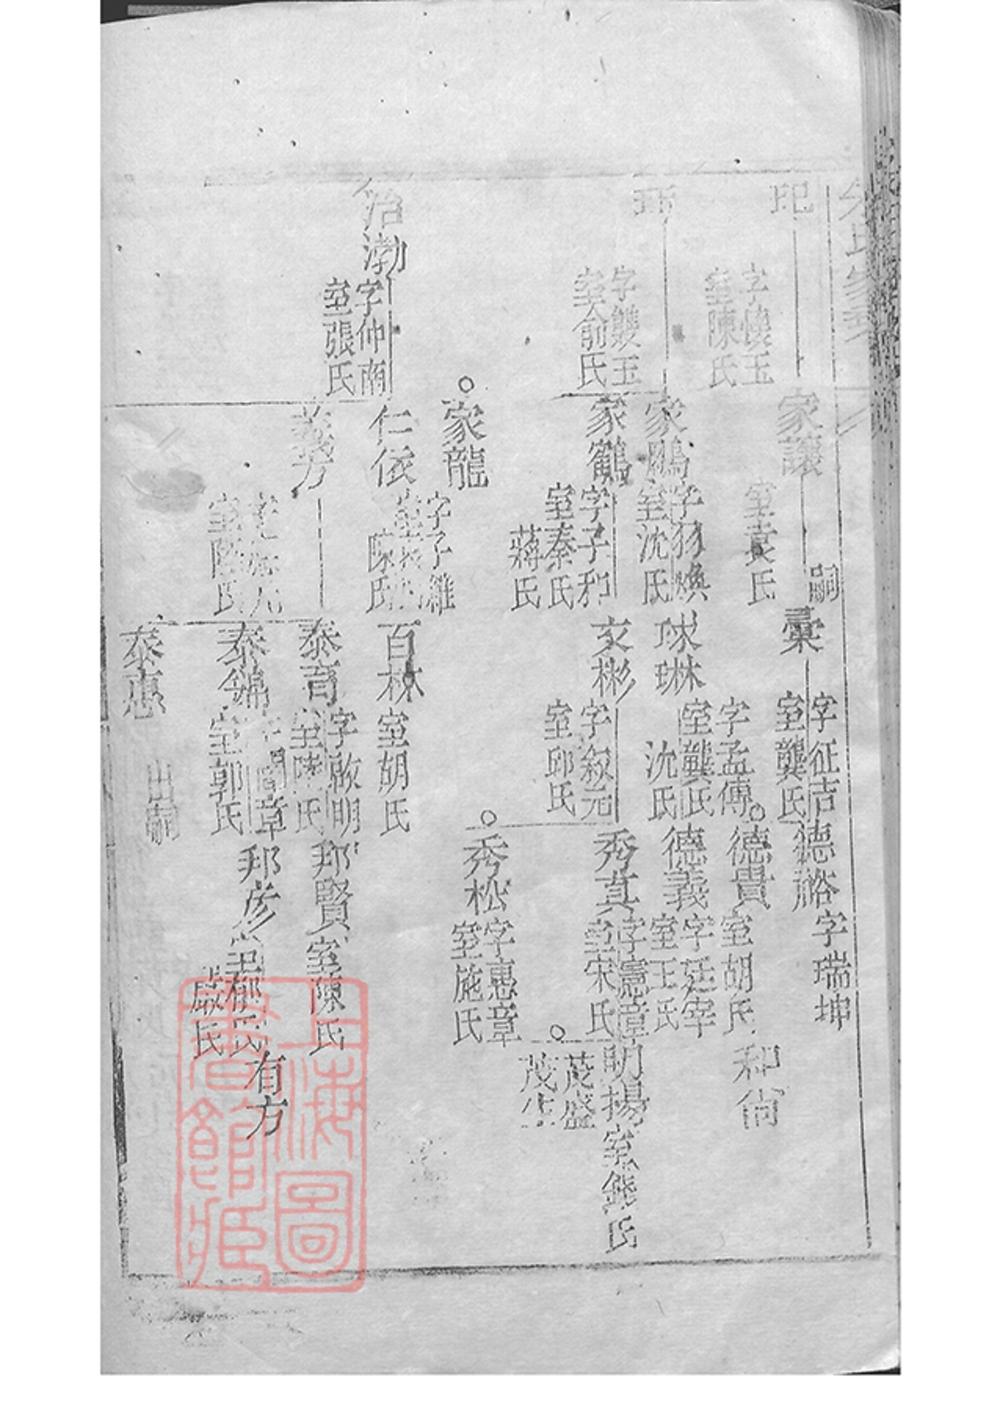 玘
字懷玉
室陳氏
家讓
室袁氏
嗣
彙
字征吉
室龔氏
德裕
字瑞坤
德貴
室胡氏
和尙
字雙玉
室俞氏
家鵬
字羽煥
室沈氏
球琳
字孟傳
室龔氏
沈氏
德義
字廷宰
室王氏
家鶴
字子和
室秦氏
蔣氏
文彬
字叙元
室邱氏
秀真
字憲章
室宋氏
明揚
室錢氏
茂盛
茂生
秀松
字惠章
室施氏
家龍
治渤
字仲南
室張氏
仁依
字子維
陳氏
百林
室胡氏
義方
室陸氏
泰育
字啟明
室陳氏
邦賢
室陳氏
泰錦
室郭氏
邦彥
有方
泰惠
出嗣
上海圖書館藏